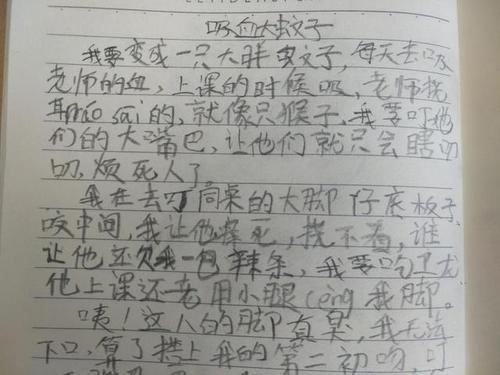 吸血大蚊子
我要变成一只大胖蚊子，每天去吸
老师的血，上课的时候吸，老师挠
其máo sāi的，就像只猴子，我要叮他
们的大嘴巴，让他们就只会瞎叨
叨，烦死人了
我在去叮同桌的大脚仔底板子，
咬中间，我让他痒死，挠不着，谁
让他还欠我一包辣条，我要吃卫龙
他上课还老用小腿cèng我脚。
咦！这人的脚真臭，我无法
下口，算了搭上我的第二初吻，叮